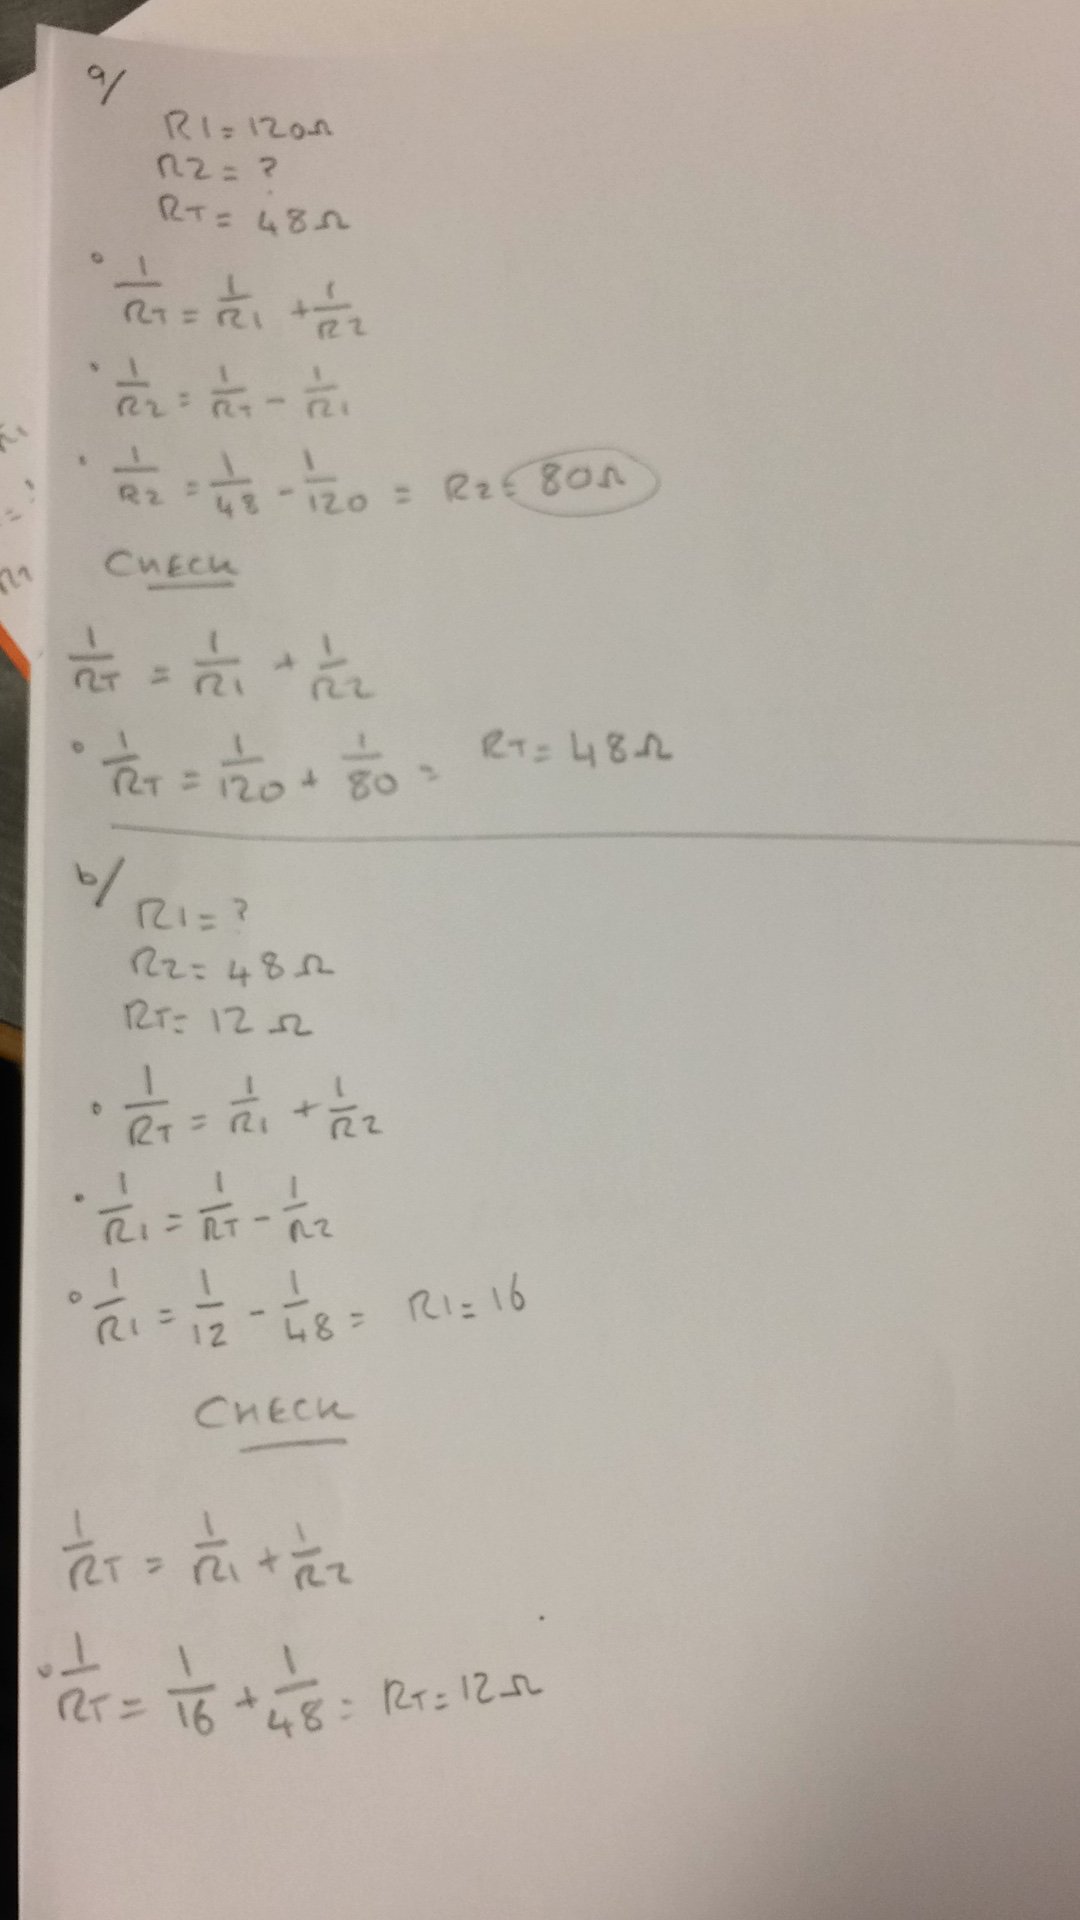 a/
R1 = 120Ω
R2 = ?
RT = 48Ω
° 1/RT = 1/R1 + 1/R2
° 1/R2 = 1/RT - 1/R1
° 1/R2 = 1/48 - 1/120 = R2 = 80Ω
CHECK
1/RT = 1/R1 + 1/R2
° 1/RT = 1/120 + 1/80 = RT = 48Ω
b/
R1 = ?
R2 = 48Ω
RT = 12Ω
° 1/RT = 1/R1 + 1/R2
° 1/R1 = 1/RT - 1/R2
° 1/R1 = 1/12 - 1/48 = R1 = 16
CHECK
1/RT = 1/R1 + 1/R2
° 1/RT = 1/16 + 1/48 = RT = 12Ω